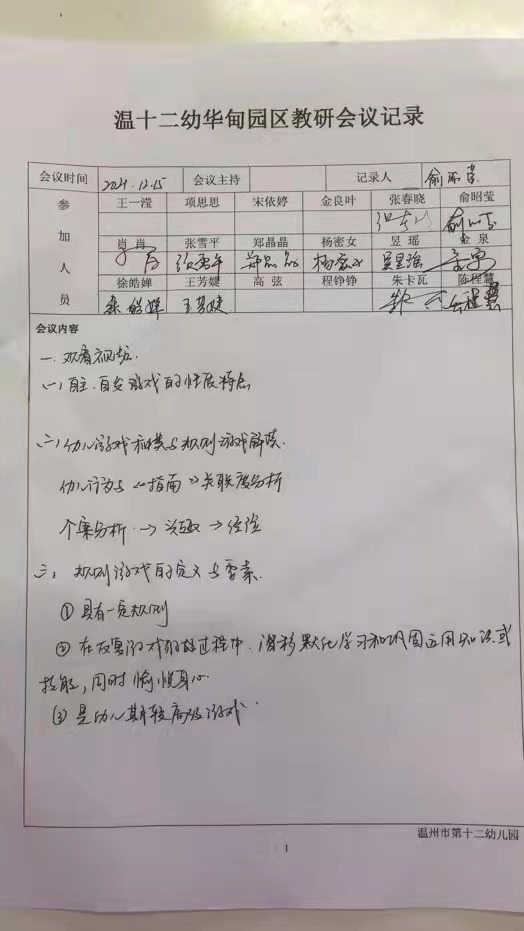 温十二幼华甸园区教研会议记录
会议时间 2021.12.15 会议主持 记录人 俞昭莹
参加人员
王一滢 项思思 宋依婷 金良叶 张春晓 俞昭莹
张春晓 俞昭莹
肖肖 张雪平 郑晶晶 杨密女 昱瑶 金泉
肖肖 张雪平 郑晶晶 杨密女 昱瑶 金泉
徐皓婵 王芳婕 高弦 程铮铮 朱卡瓦 陈程慧
徐皓婵 王芳婕 陈程慧
会议内容
一、观看视频.
(一) 自主、自发游戏的性质特点
二、幼儿游戏和类与规则游戏解读.
幼儿行为与《指南》关联度分析
个案分析 → 兴趣 → 经验
三、规则游戏的定义与要素.
① 具有一定规则
② 在反复游戏的过程中,潜移默化学习和巩固运用知识或
技能,同时愉悦身心.
③ 是幼儿期较高级游戏.
温州市第十二幼儿园
1